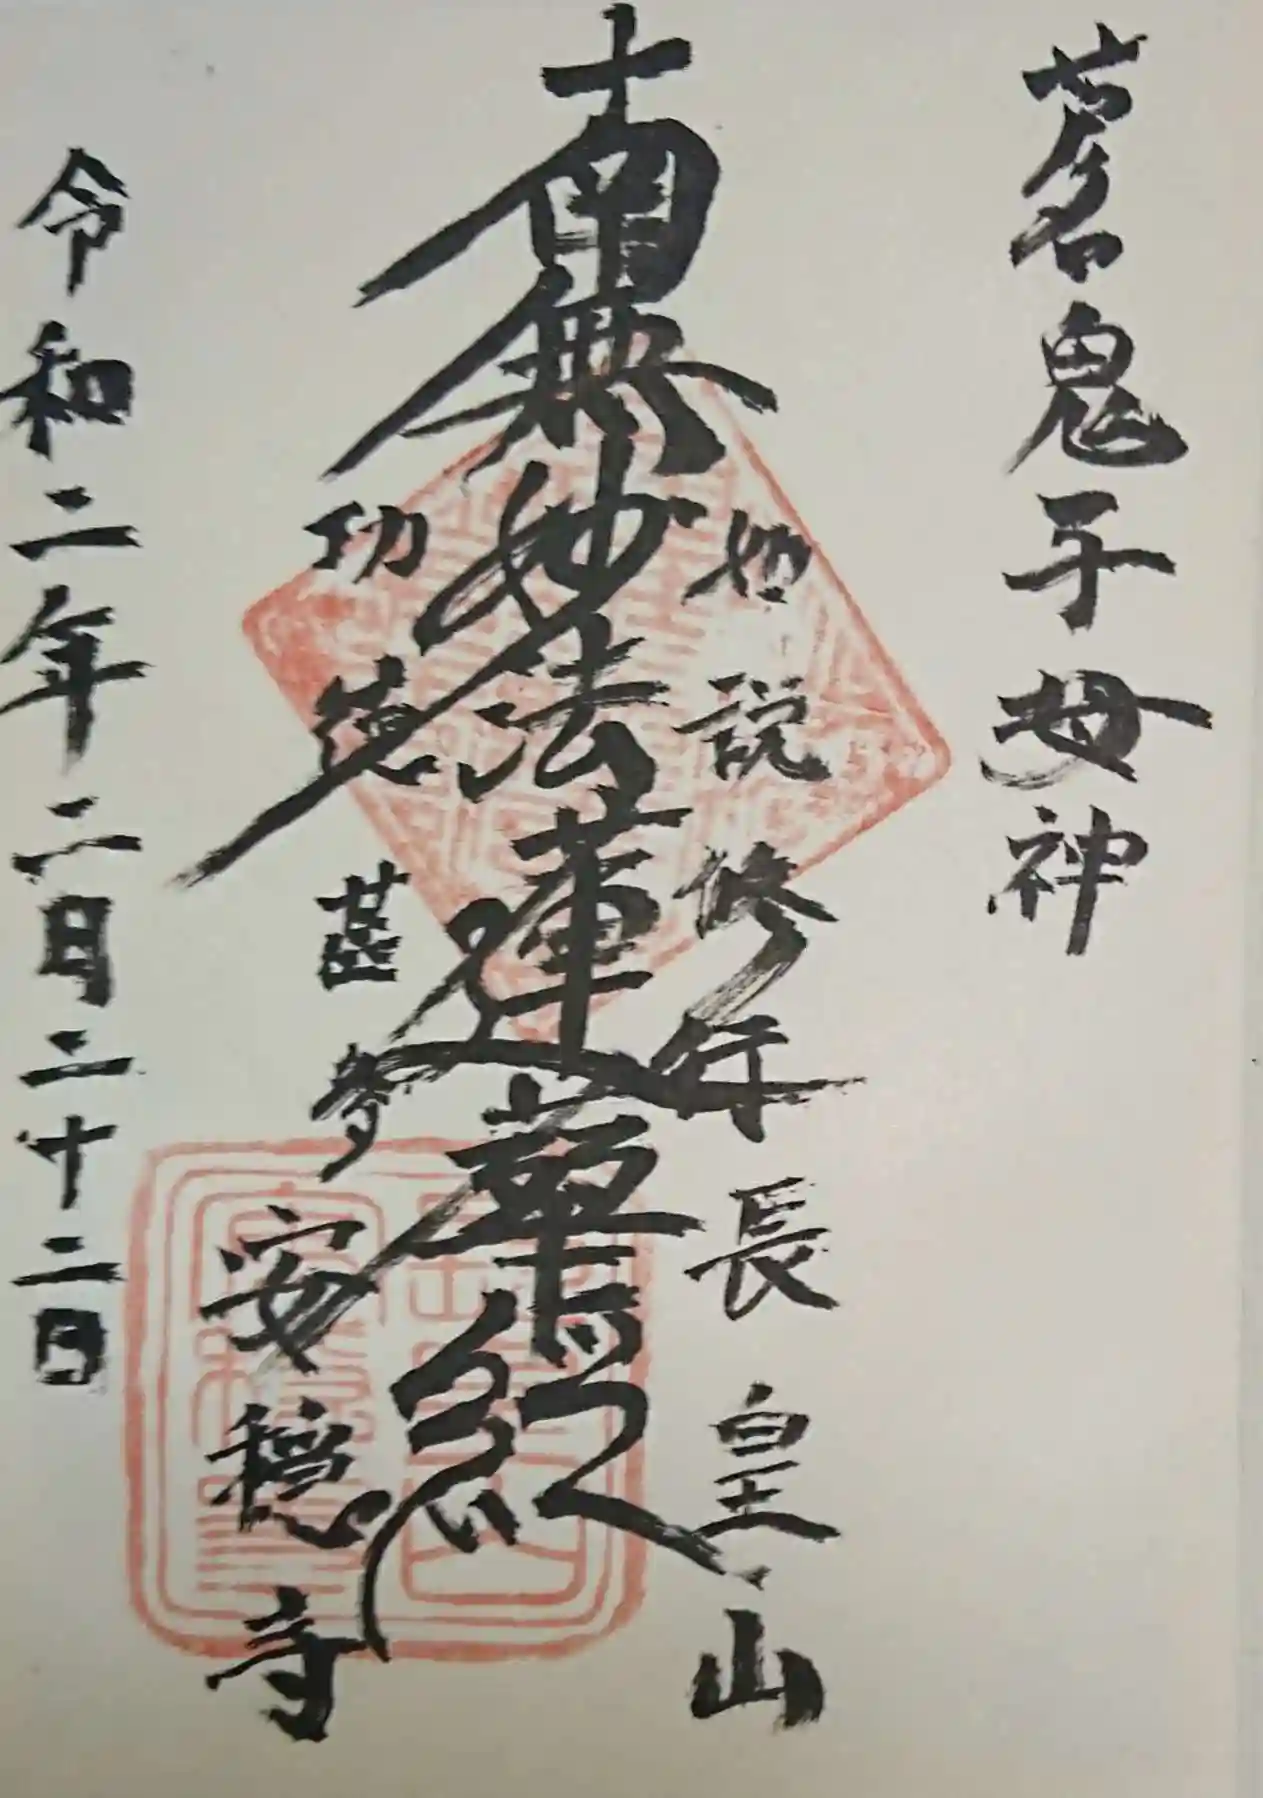 著名鬼子母神
如説修行長皇山
南無妙法蓮華経
功徳甚多
安穏寺
令和二年二月二十二日